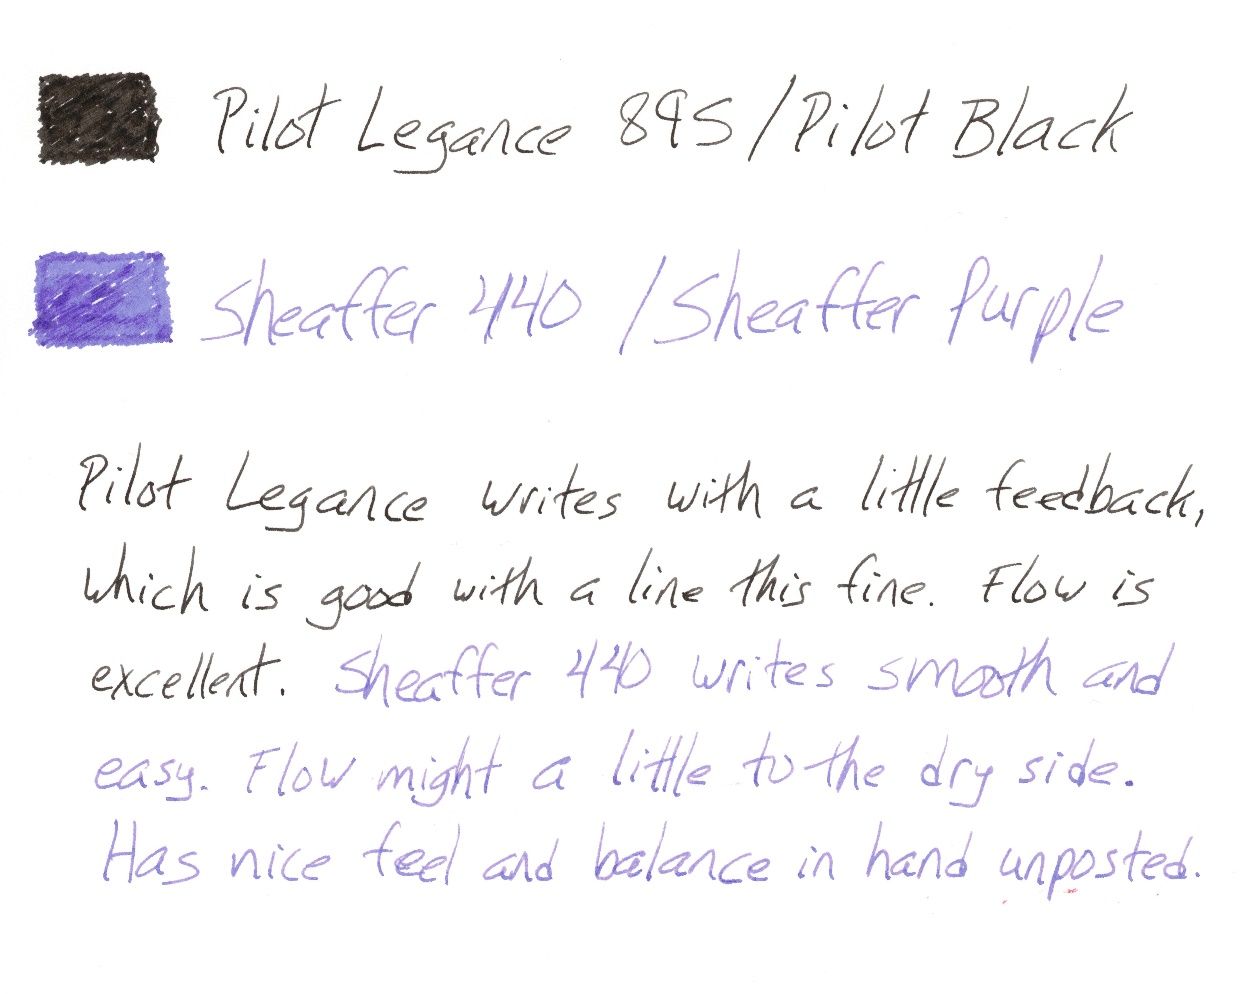 Pilot Legance 89S/Pilot Black
Sheaffer 440/Sheaffer Purple
Pilot Legance writes with a little feedback,
which is good with a line this fine. Flow is
excellent. Sheaffer 440 writes smooth and
easy. Flow might a little to the dry side.
Has nice feel and balance in hand unposted.